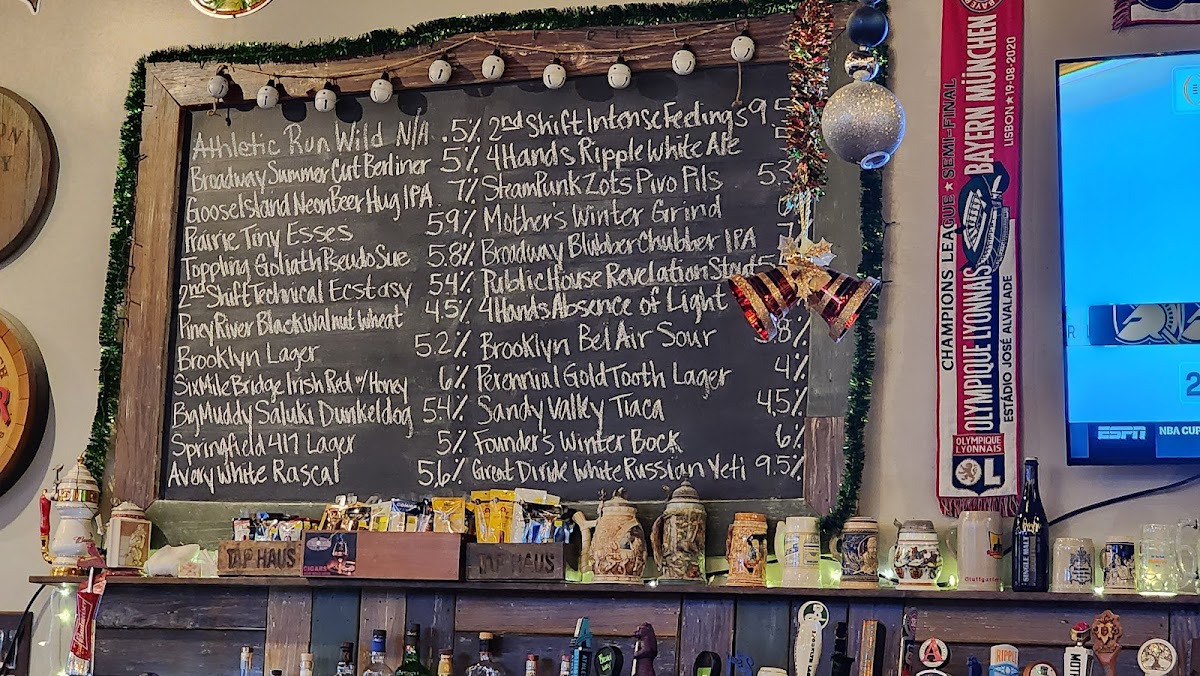 Athletic Run Wild N/A .5%
Broadway Summer Curt Berliner 5%
Goose Island Neon Beer Hug IPA 7%
Prairie Tiny Esses 5.9%
Toppling Goliath Pseudo Sue 5.8%
2nd Shift Technical Ecstasy 5.4%
Piney River Black Walnut Wheat 4.5%
Brooklyn Lager 5.2%
Six Mile Bridge Irish Red w/ Honey 6%
Big Muddy Saluki Dunkeldog 5.4%
Springfield 417 Lager 5%
Avery White Rascal 5.6%
2nd Shift Intense Feelings 9.5
4 Hands Ripple White Ale
SteamPunk Zots Pivo Pils 5.3
Mother's Winter Grind
Broadway Blubber Chubber IPA
Public House Revelation Stout
4 Hands Absence of Light
Brooklyn Bel Air Sour
Perennial Gold Tooth Lager 4%
Sandy Valley Tiaca 4.5%
Founder's Winter Bock 6%
Great Divide White Russian Yeti 9.5%
CHAMPIONS LEAGUE ★ SEMI-FINAL
OLYMPIQUE LYONNAIS BAYERN MÜNCHEN
ESTÁDIO JOSÉ ALVALADE LISBON ★ 19-08-2020
OLYMPIQUE
LYONNAIS
OL
ESPN NBA CUP
2
TAP HAUS
CIGARS
TAP HAUS
SINGLE MALT
RIPPLE